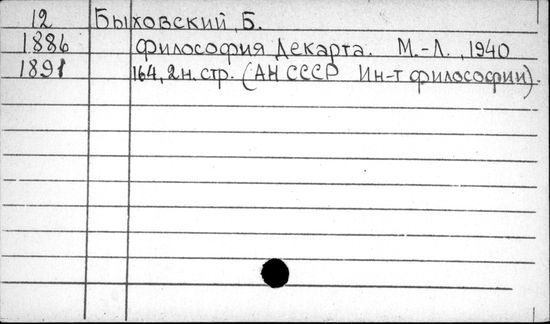 12 Быховский, Б.
1886 Философия Декарта. М.-Л., 1940
1891 164, 2 н. стр. (АН СССР Ин-т философии).